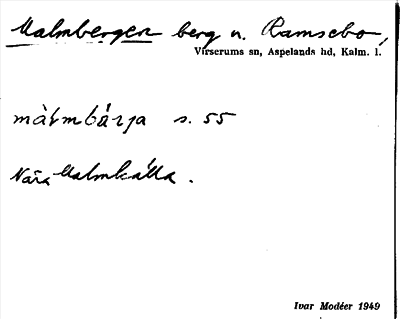 Malmbergen berg n. Ramsebo,
Virserums sn, Aspelands hd, Kalm. l.
s. 55
Nära Malmkälla.
Ivar Modéer 1949